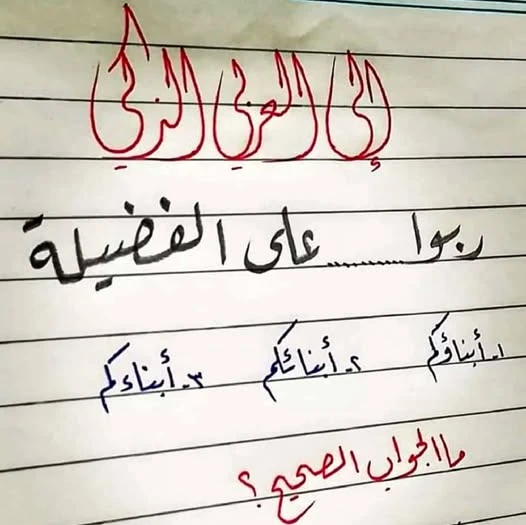 إلى العربي الذكي
ربوا ......... على الفضيلة
١- أبناؤكم ٢- أبنائكم ٣- أبناءكم
ما الجواب الصحيح؟